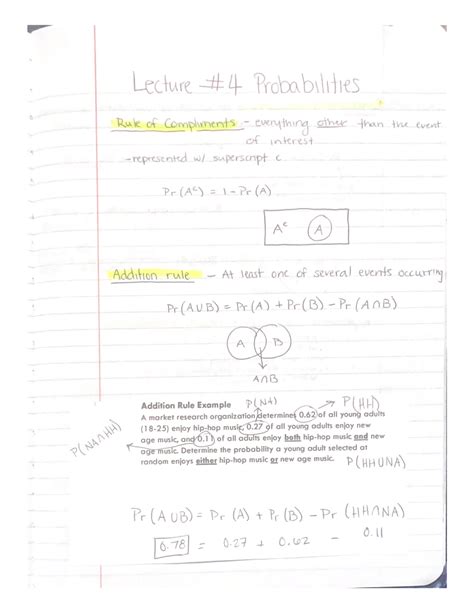 Lecture #4 Probabilities
Rule of Compliments - everything other than the event
of interest
-represented w/ superscript c.
Pr(Aᶜ) = 1 - Pr(A)
Aᶜ A
Addition rule - At least one of several events occurring
Pr(A∪B) = Pr(A) + Pr(B) - Pr(A∩B)
A B
A∩B
Addition Rule Example P(NA) P(HH)
A market research organization determines 0.62 of all young adults
(18-25) enjoy hip-hop music, 0.27 of all young adults enjoy new
age music, and 0.11 of all adults enjoy both hip-hop music and new
age music. Determine the probability a young adult selected at
random enjoys either hip-hop music or new age music. P(HH∪NA)
P(NA∩HH)
Pr(A∪B) = Pr(A) + Pr(B) - Pr(HH∩NA)
0.78 = 0.27 + 0.62 - 0.11